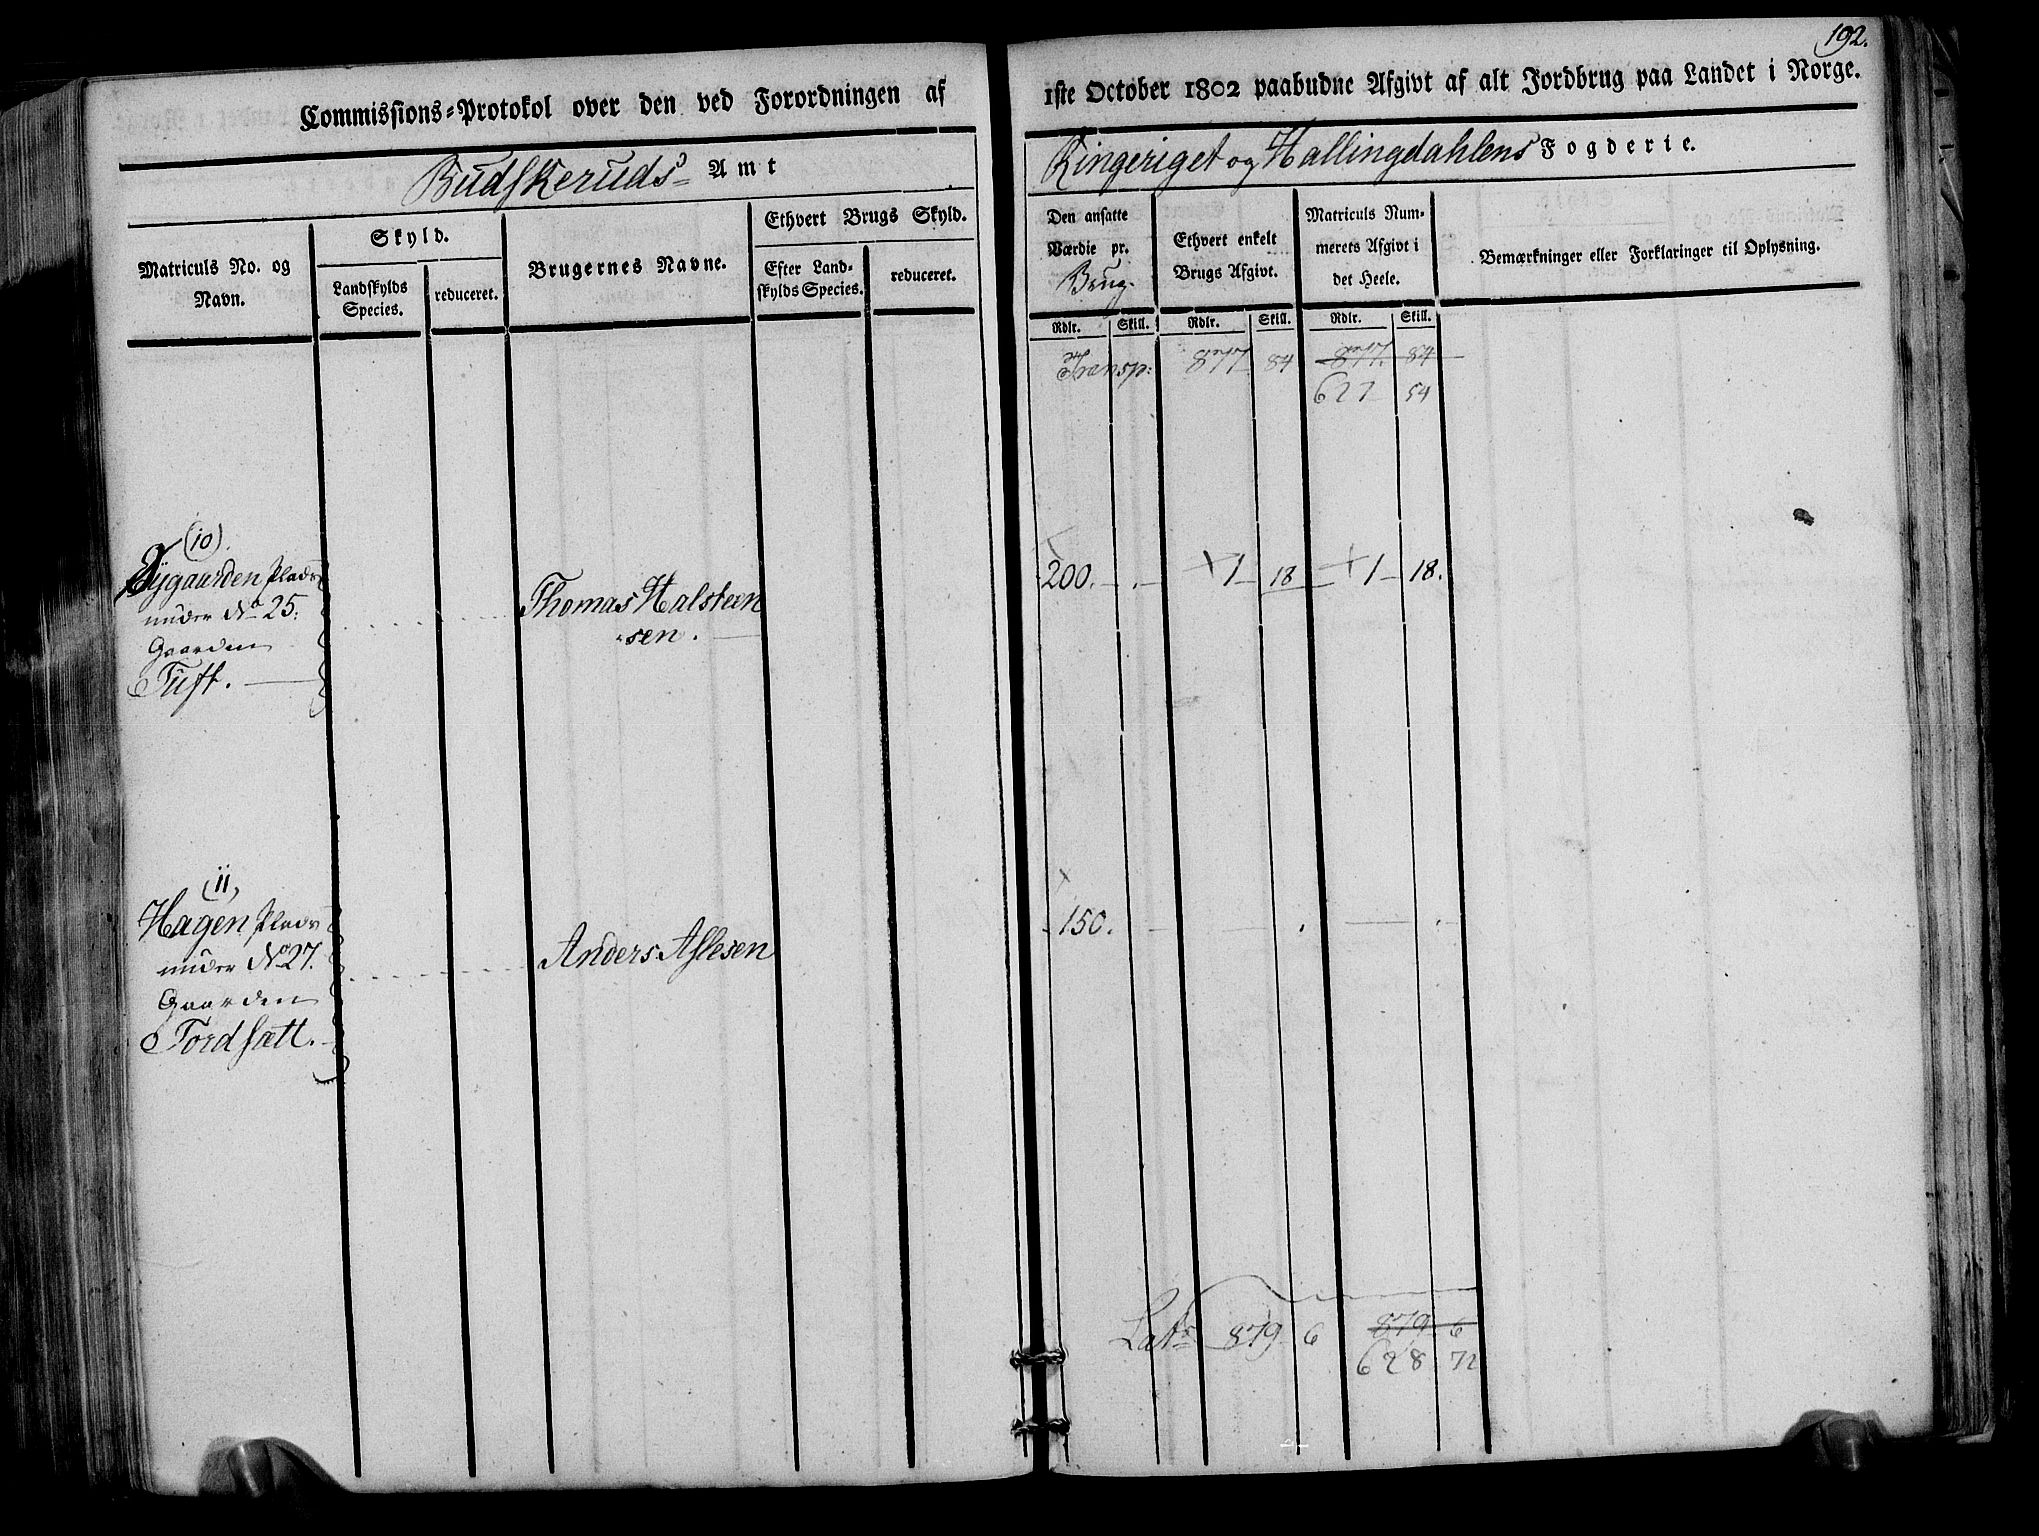 192.
Commissions-Protokol over den ved Forordningen af
1ste October 1802 paabudne Afgivt af alt Jordbrug paa Landet i Norge.
Budskeruds Amt
Ringeriget og Hallingdahlens Fogderie.
Matriculs No. og
Navn.
Skyld.
Landskylds
Species.
reduceret.
Brugernes Navne.
Ethvert Brugs Skyld.
Efter Land-
skylds Species.
reduceret.
Den ansatte
Værdie pr.
Brug.
Ethvert enkelt
Brugs Afgivt.
Matriculs Num-
merets Afgivt i
det Heele.
Bemærkninger eller Forklaringer til Oplysning.
Rdlr. Skill. Rdlr. Skill. Rdlr. Skill.
Transp: 84 84
627 54
(10)
Øygaarden Plads
under No 25.
Gaarden
Tuft.
Thomas Halsteen
sen.
200. 1 18 1 18.
(11)
Hagen Plads
under No 27.
Gaarden
Tordsætt.
Anders Aslesen
150.
Lats 879 6 879 6
628 72